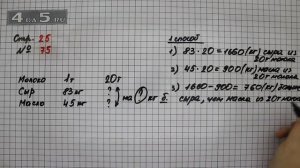 4GDZ.RU
Стр. 25
№ 75
Молоко 1т 20т
Сыр 83кг ?
Масло 45кг ?
на ? кг б.
1 способ
1) 83 · 20 = 1660 (кг) сыра из
20т молока
2) 45 · 20 = 900 (кг) масла из
20т молока
3) 1660 - 900 = 760 (кг) больше
сыра, чем масла из 20т молока